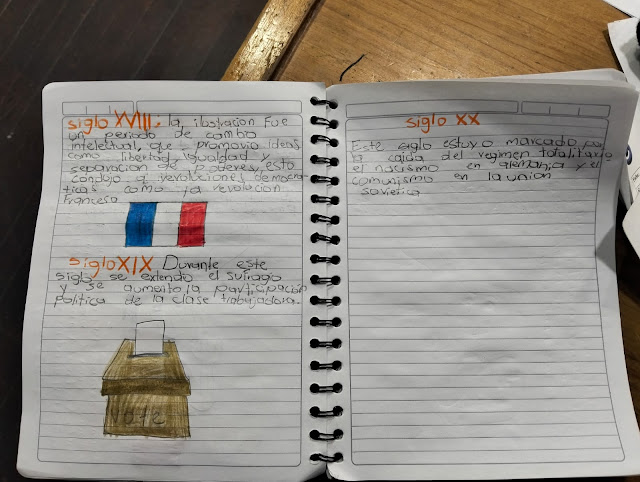 siglo XVIII: la ilustracion Fue
un periodo de cambio
intelectual, que promovio ideas
como libertad, igualdad y
separacion de poderes, esto
condojo a revoluciones democra
ticas como la revolucion
Francesa
siglo XIX Durante este
siglo se extendo el sufragio
y se aumento la participación
política de la clase trabajadora.
Vote
siglo XX
Este siglo estuvo marcado por
la caida del regimen totalitario
el nacismo en alemania y el
comunismo en la union
sovietica